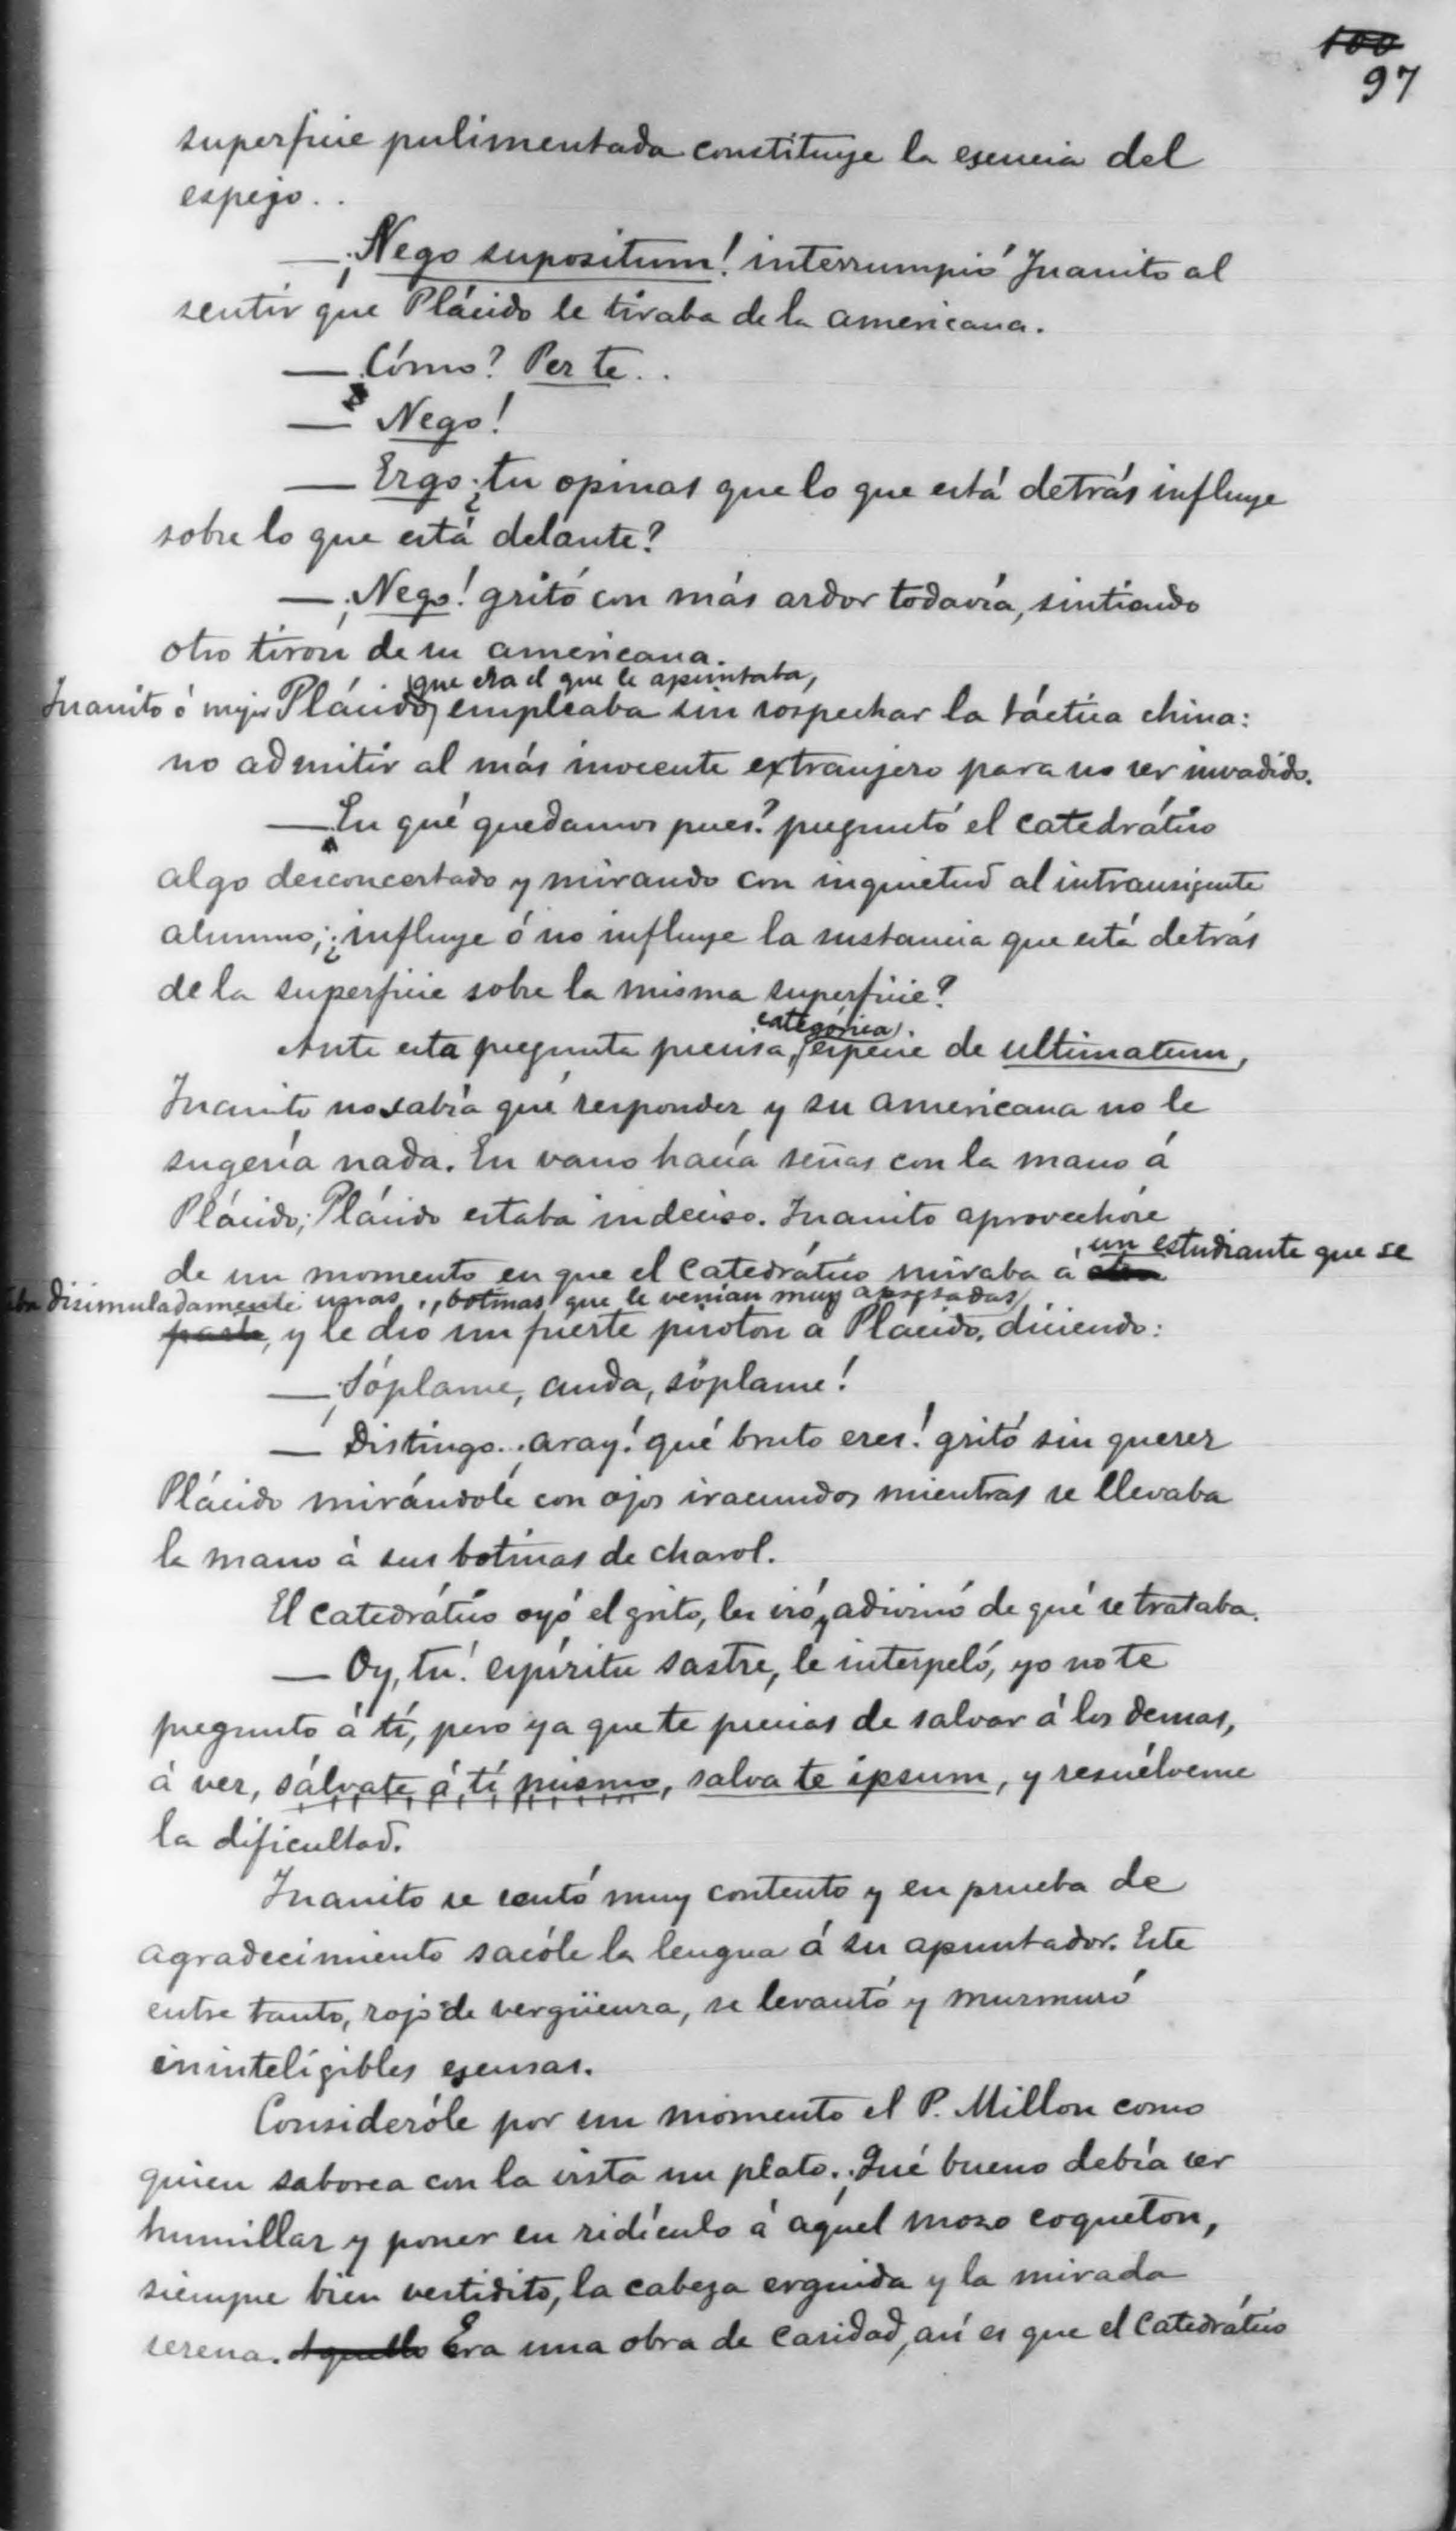 100
97
superficie pulimentada constituye la esencia del
espejo..
— ¡Nego supositum! interrumpió Juanito al
sentir que Plácido le tiraba de la americana.
— ¿Cómo? Per te..
— ¡Nego!
— Ergo ¿tu opinas que lo que está detrás influye
sobre lo que está delante?
— ¡Nego! gritó con más ardor todavía, sintiendo
otro tiron de su americana.
que era el que le apuntaba,
Juanito ó mejor Plácido, empleaba sin sospechar la táctica china:
no admitir al más inocente extranjero para no ser invadido.
— ¿En qué quedamos pues? preguntó el catedrático
algo desconcertado y mirando con inquietud al intransigente
alumno; ¿influye ó no influye la sustancia que está detrás
de la superficie sobre la misma superficie?
categórica,
Ante esta pregunta precisa, especie de ultimatum,
Juanito no sabía qué responder y su americana no le
sugería nada. En vano hacía señas con la mano á
Plácido; Plácido estaba indeciso. Juanito aprovechóse
un estudiante que se
de un momento en que el catedrático miraba a otra
taba disimuladamente unas botinas que le venían muy apretadas,
parte, y le dió un fuerte pisoton á Plácido, diciendo:
— ¡Sóplame, anda, sóplame!
— Distingo.. ¡aray! qué bruto eres! gritó sin querer
Plácido mirándole con ojos iracundos mientras se llevaba
la mano á sus botinas de charol.
El catedrático oyó el grito, les vió y adivinó de qué se trataba.
— Oy, tú! espíritu sastre, le interpeló, yo no te
pregunto á tí, pero ya que te precias de salvar á los demas,
á ver, sálvate á tí mismo, salva te ipsum, y resuélveme
la dificultad.
Juanito se sentó muy contento y en prueba de
agradecimiento sacóle la lengua á su apuntador. Este
entre tanto, rojo de vergüenza, se levantó y murmuró
ininteligibles escusas.
Consideróle por un momento el P. Millon como
quien saborea con la vista un plato. ¡Qué bueno debía ser
humillar y poner en ridículo á aquel mozo coqueton,
siempre bien vestidito, la cabeza erguida y la mirada
serena. Aquello Era una obra de caridad, así es que el catedrático